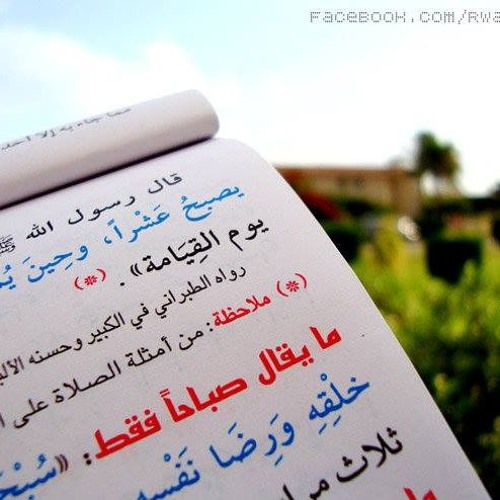 FACEBOOK.COM/RWA
به إلا أحد
قال رسول الله ﷺ
يصبحُ عَشْراً، وحِينَ
يوم القِيَامة» . (*)
رواه الطبراني في الكبير وحسنه
(*) ملاحظة: من أمثلة الصلاة على
ما يقال صباحاً فقط: «
خلقِهِ وَرِضَا نَفْسِهِ
ثلاث